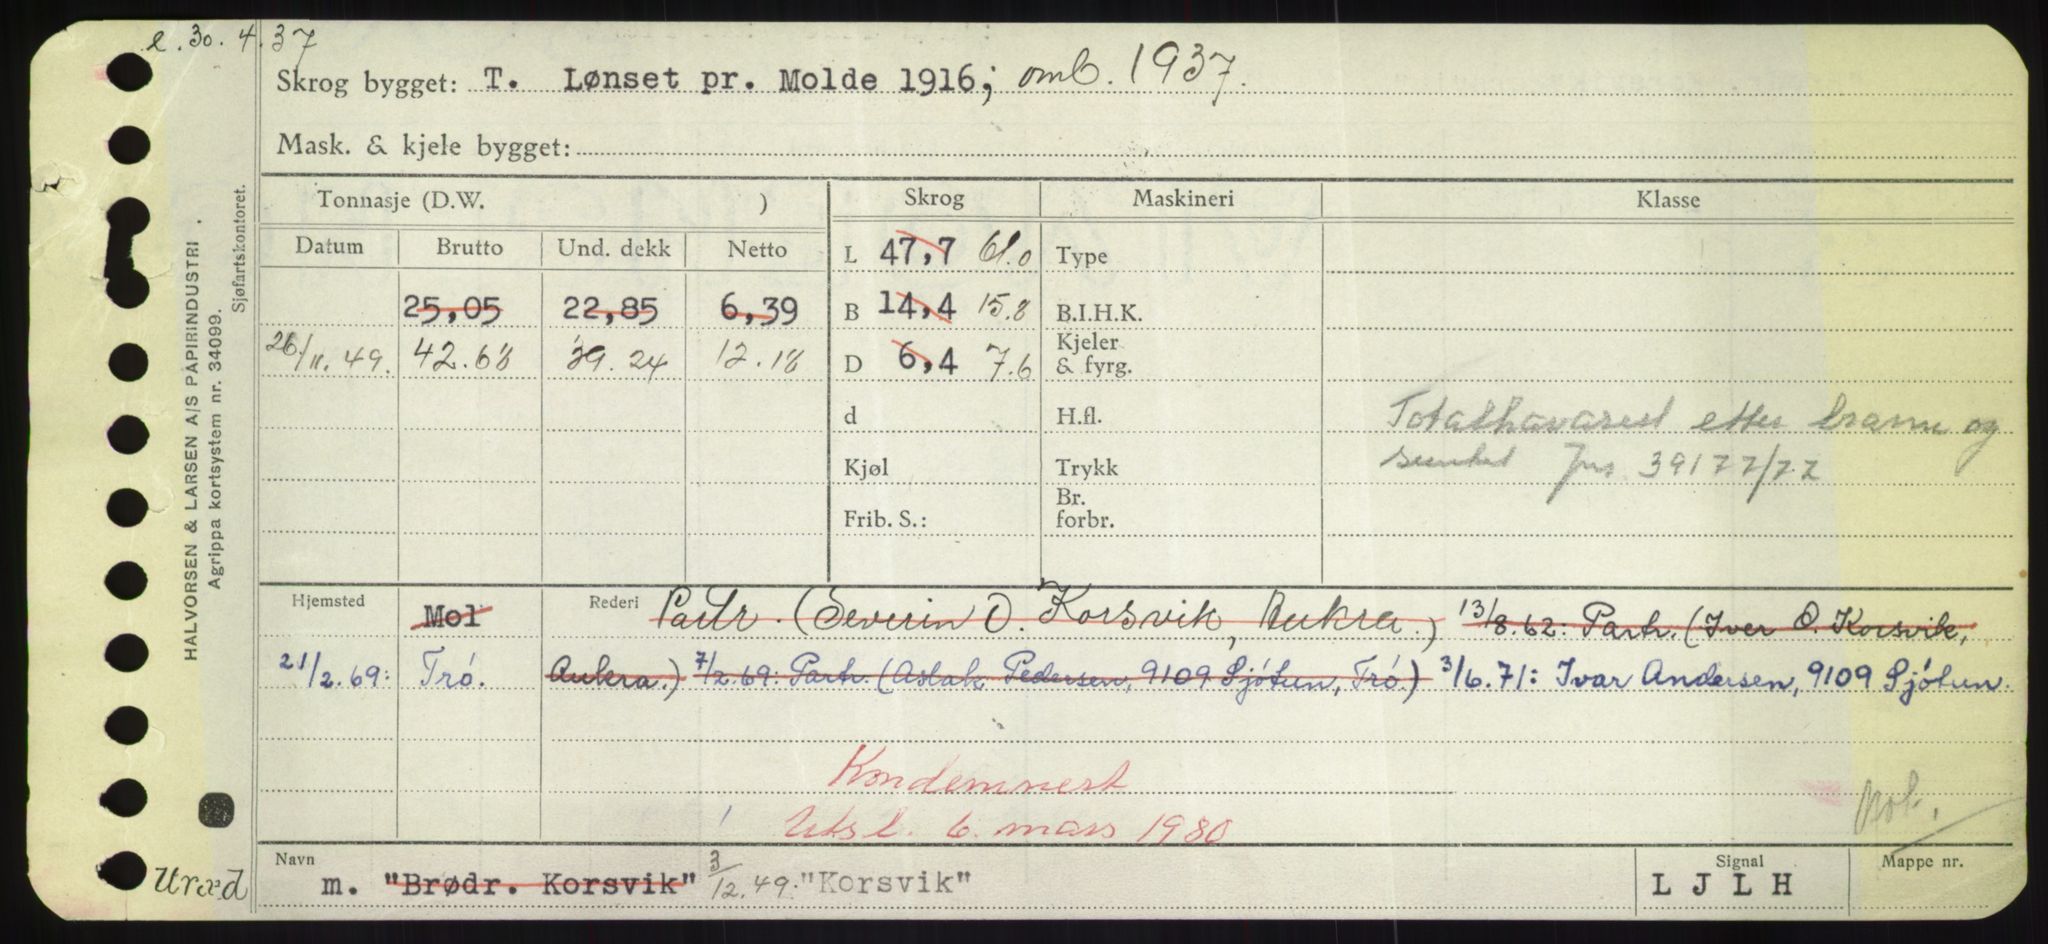 l. 30.4.37
Skrog bygget: T. Lønset pr. Molde 1916; omb. 1937.
Mask. & kjele bygget:
Tonnasje (D.W. ) Skrog Maskineri Klasse
Datum Brutto Und. dekk Netto L 47,7 61.0 Type
25,05 22,85 6,39 B 14,4 15.8 B.I.H.K.
26/11.49. 42.68 39.24 12.18 D 6,4 7.6 Kjeler & fyrg.
d H.fl. Totalhavarest etter brann og
Kjøl Trykk sunket Jnr. 39177/77
Frib. S.: Br. forbr.
Hjemsted Mol Rederi Partr. (Severin O. Korsvik, Aukra.) 13/8.62: Partr. (Iver O. Korsvik,
21/2.69: Trø. Aukra.) 7/2.69: Partr. (Aslak Pedersen, 9109 Sjøtun, Trø.) 3/6.71: Ivar Andersen, 9109 Sjøtun.
Kondemnert
Utsl. 6. mars 1980
Not.
Navn Signal Mappe nr.
m. "Brødr. Korsvik" 3/12.49. "Korsvik" L J L H
Utræd
HALVORSEN & LARSEN A/S PAPIRINDUSTRI .
Agrippa kortsystem nr. 34099.
Sjøfartskontoret.